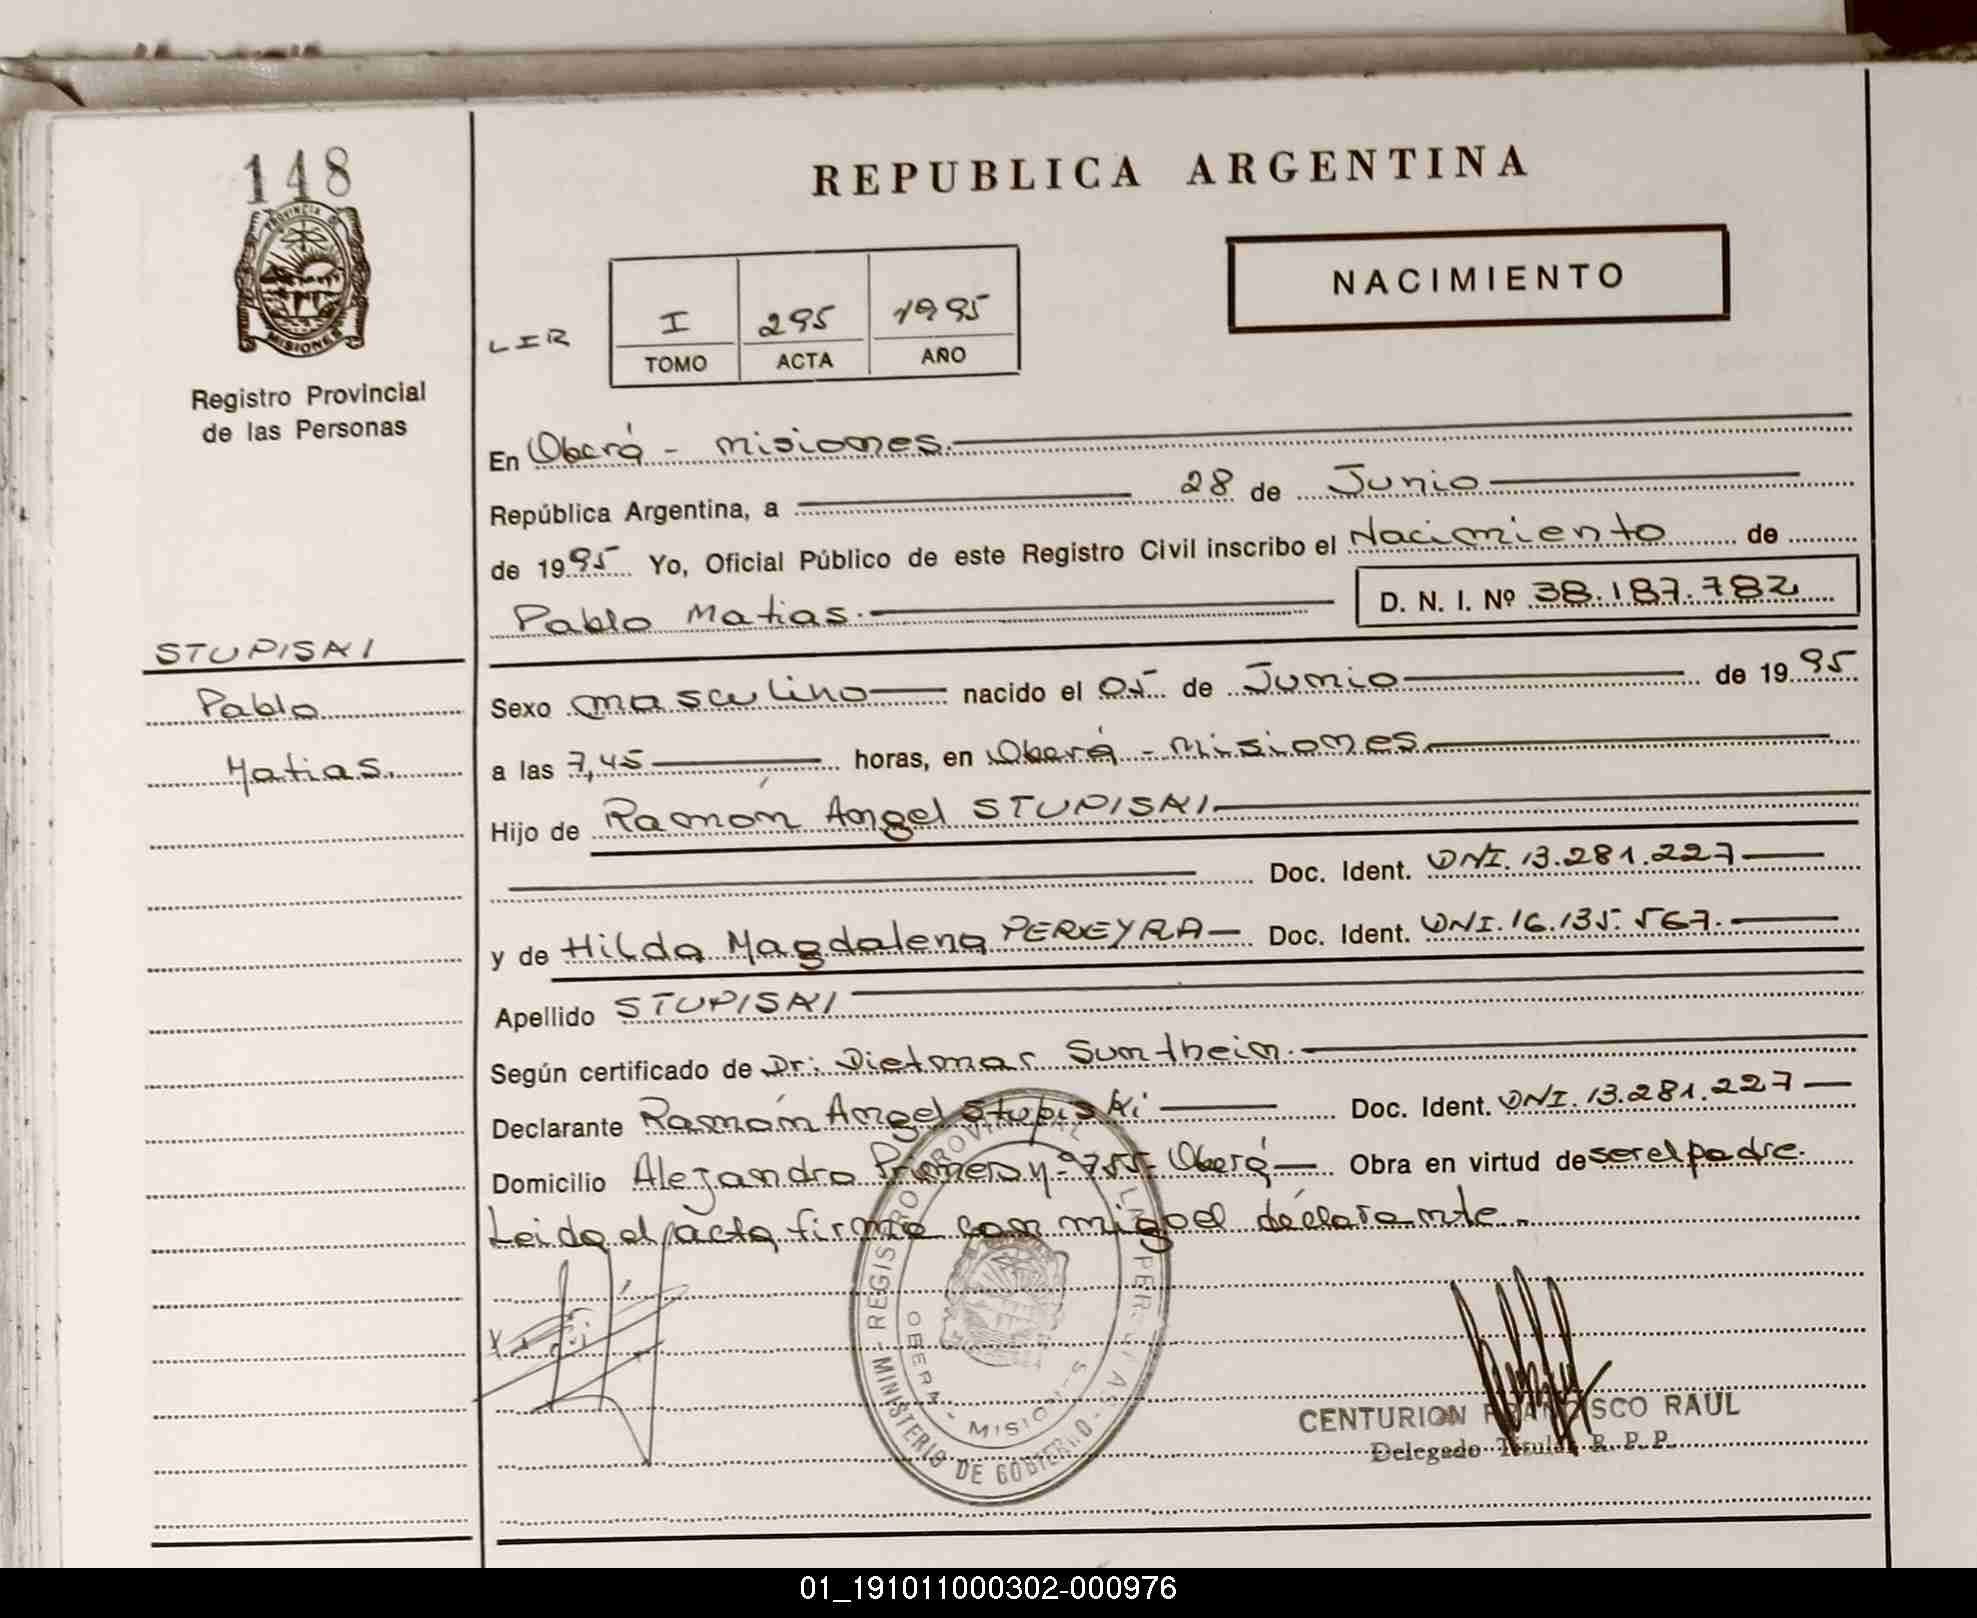 148
PROVINCIA DE
MISIONES
Registro Provincial
de las Personas
STUPISKI
Pablo
Matias.
REPUBLICA ARGENTINA
NACIMIENTO
LIR
I 295 1995
TOMO ACTA AÑO
En Oberá - Misiones.
República Argentina, a 28 de Junio
de 1995 Yo, Oficial Público de este Registro Civil inscribo el Nacimiento de
Pablo Matias. D. N. I. Nº 38.187.782
Sexo masculino nacido el 05 de Junio de 1995
a las 7,45 horas, en Oberá - Misiones
Hijo de Ramón Angel STUPISKI
Doc. Ident. DNI. 13.281.227
y de Hilda Magdalena PEREYRA Doc. Ident. DNI. 16.135.567.
Apellido STUPISKI
Según certificado de Dr: Dietmar Suntheim.
Declarante Ramón Angel Stupiski Doc. Ident. DNI. 13.281.227
Domicilio Alejandro 755 - Oberá Obra en virtud de ser el padre.
Leida el acta firma con migo el declarante.
REGISTRO PROVINCIAL DE LAS PERSONAS
OBERA - MISIONES
MINISTERIO DE GOBIERNO
CENTURION FRANCISCO RAUL
Delegado Titular R. P. P.
01_191011000302-000976